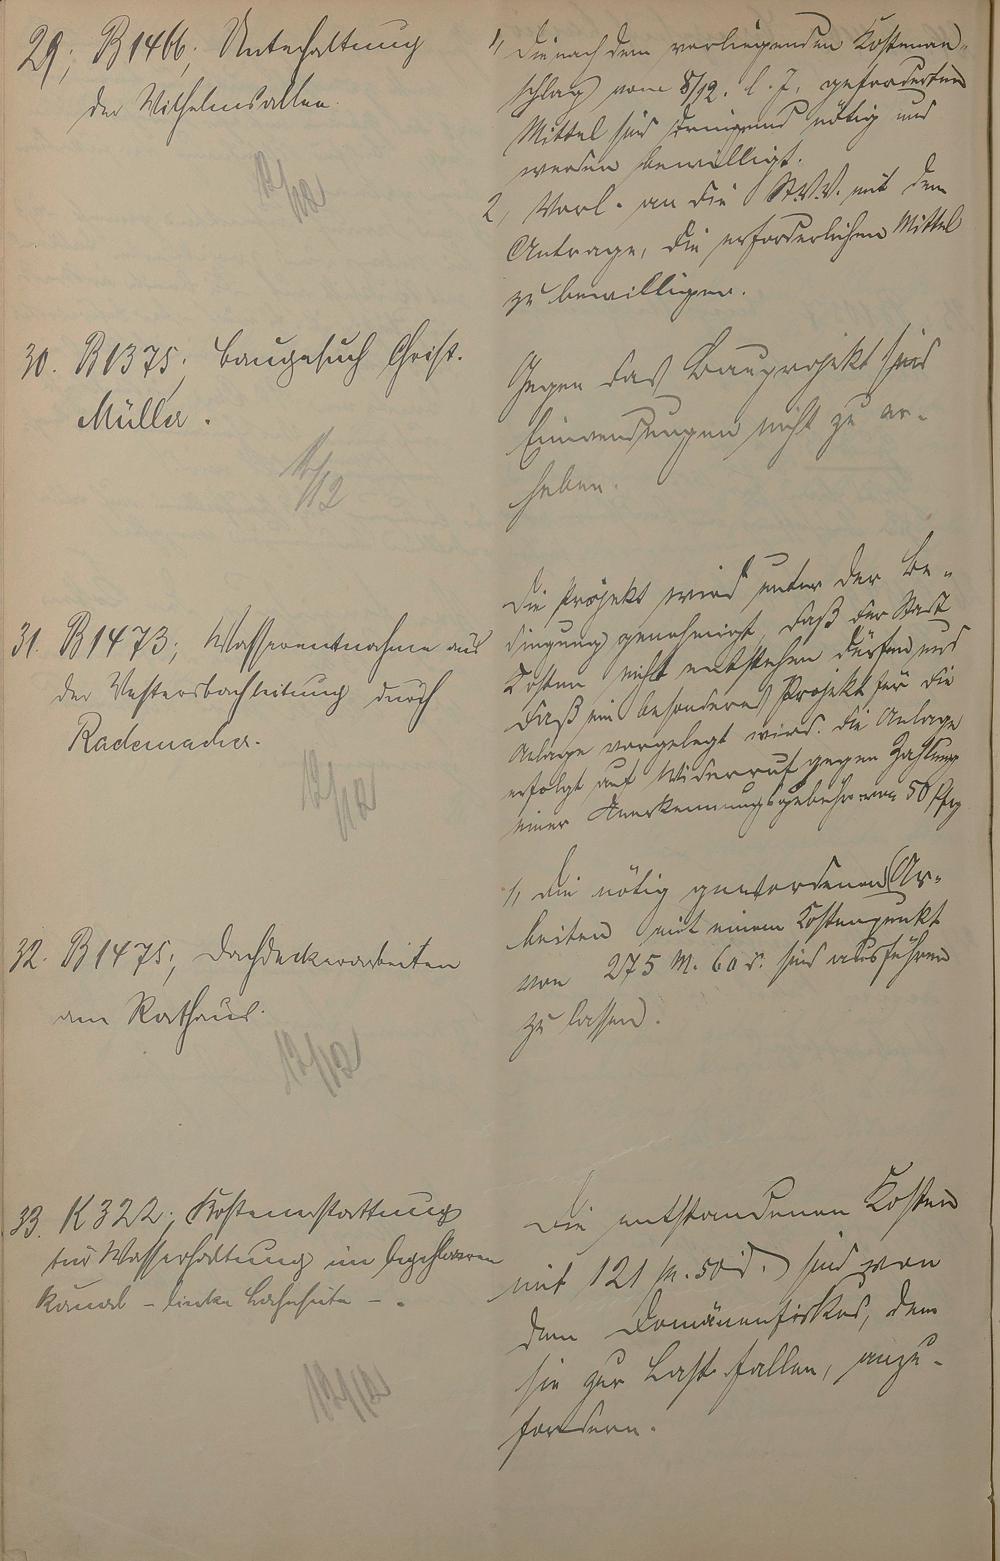 29, B 1466; Unterhaltung
der Wilhelmsallee.
12/12
1, Die nach dem vorliegenden Kostenan-
schlag vom 8/12. l. J. geforderten
Mittel sind dringend nötig und
werden bewilligt.
2, Vorl. an die St.V.V. mit dem
Antrage, die erforderlichen Mittel
zu bewilligen.
30. B 1375; Baugesuch Christ.
Müller.
12/12
Gegen das Bauprojekt sind
Einwendungen nicht zu er-
heben.
31. B 1473; Wasserentnahme aus
der Vestersbachleitung durch
Rademacher.
12/12
Die Projekt wird unter der Be-
dingung genehmigt, daß der Stadt
Kosten nicht entstehen dürfen und
daß ein besonderes Projekt für die
Anlage vorgelegt wird. Die Anlage
erfolgt auf Widerruf gegen Zahlung
einer Anerkennungsgebühr von 50 Pfg
32. B 1475; Dachdeckerarbeiten
am Rathaus.
12/12
1, Die nötig gewordenen Ar-
beiten mit einem Kostenpunkt
von 275 M. 60 d. sind ausführen
zu lassen.
33. K 322; Kostenerstattung
für Wasserhaltung im
Kanal - linke Bahnseite -.
12/12
Die entstandenen Kosten
mit 121 M. 50 d. sind von
dem Domänenfiskus, dem
sie zur Last fallen, anzu-
fordern.